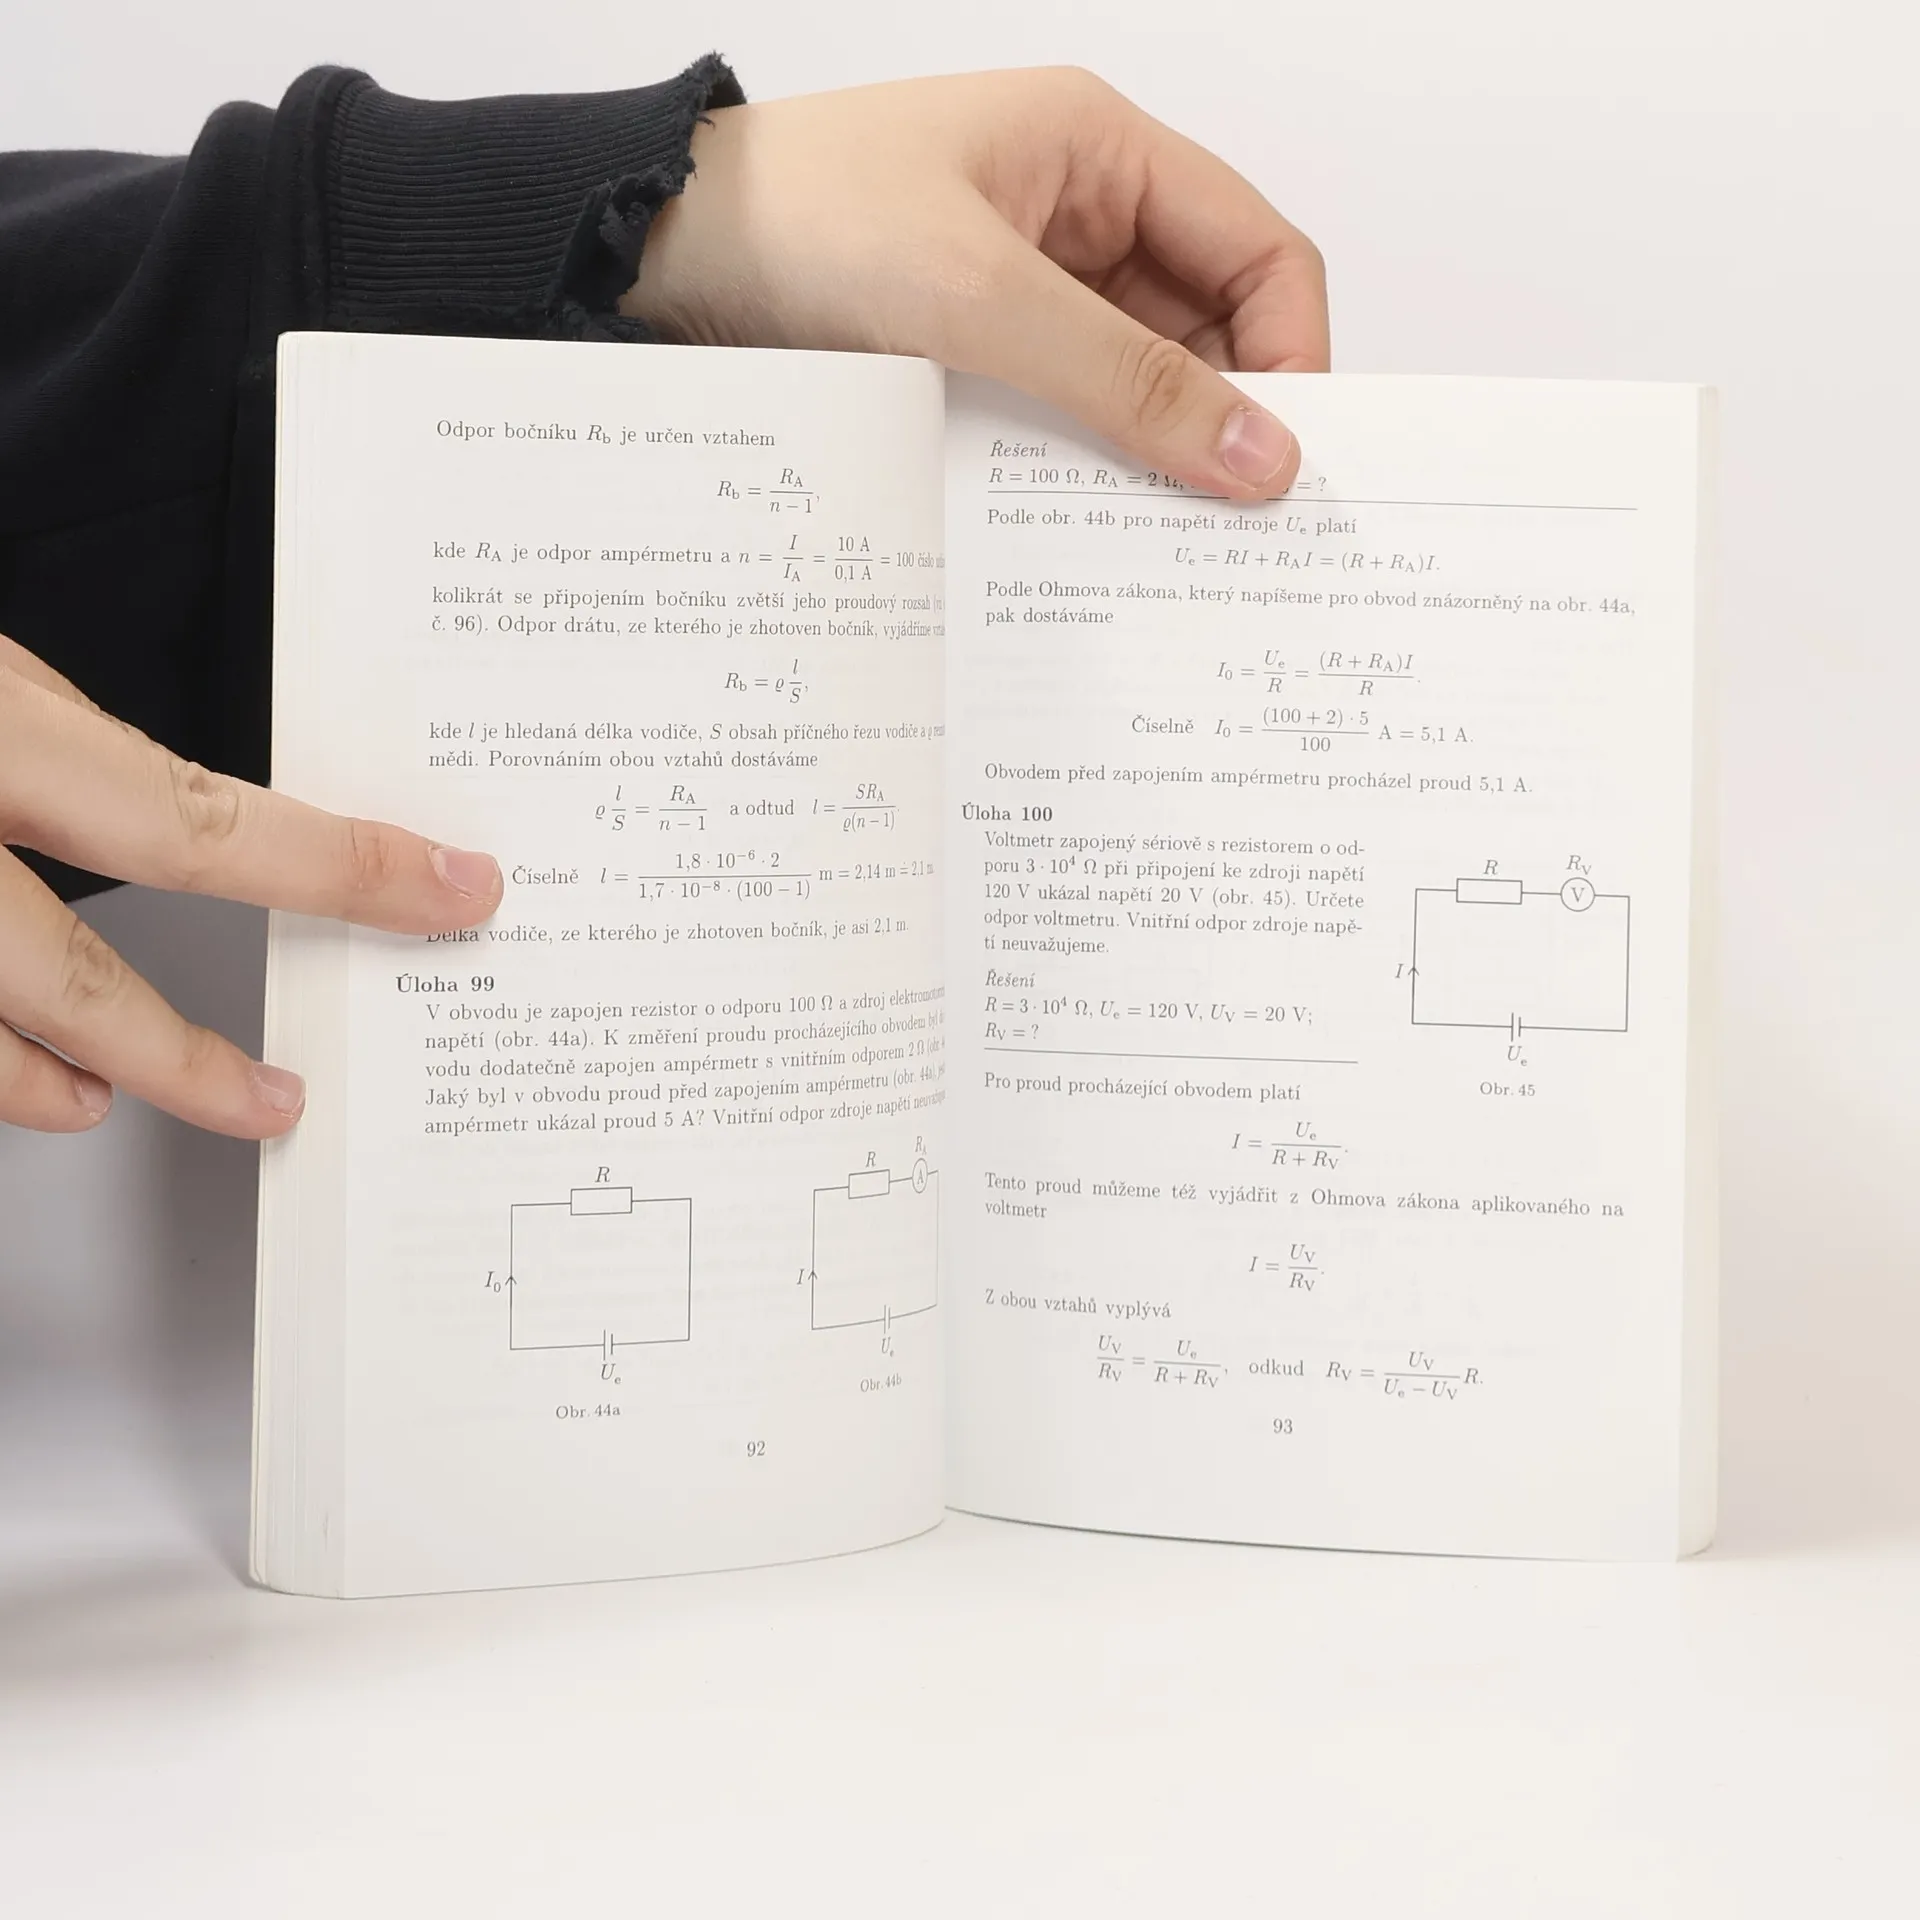 Odpor bočníku R_b je určen vztahem
R_b = R_A / (n − 1),
kde R_A je odpor ampérmetru a n = I / I_A = 10 A / 0,1 A = 100 číslo
kolikrát se připojením bočníku zvětší jeho proudový rozsah
č. 96). Odpor drátu, ze kterého je zhotoven bočník, vyjádříme
R_b = ϱ l / S,
kde l je hledaná délka vodiče, S obsah příčného řezu vodiče a ϱ
mědi. Porovnáním obou vztahů dostáváme
ϱ l / S = R_A / (n − 1) a odtud l = SR_A / ϱ(n − 1)
Číselně l = 1,8 · 10⁻⁶ · 2 / 1,7 · 10⁻⁸ · (100 − 1) m = 2,14 m ≐ 2,1 m
Délka vodiče, ze kterého je zhotoven bočník, je asi 2,1 m.
Úloha 99
V obvodu je zapojen rezistor o odporu 100 Ω a zdroj
napětí (obr. 44a). K změření proudu procházejícího obvodem byl
vodu dodatečně zapojen ampérmetr s vnitřním odporem 2 Ω
Jaký byl v obvodu proud před zapojením ampérmetru (obr. 44a),
ampérmetr ukázal proud 5 A? Vnitřní odpor zdroje napětí
R
I₀
U_e
Obr. 44a
R R_A
A
I
U_e
Obr. 44b
92
Řešení
R = 100 Ω, R_A = 2 Ω, = ?
Podle obr. 44b pro napětí zdroje U_e platí
U_e = RI + R_A I = (R + R_A)I.
Podle Ohmova zákona, který napíšeme pro obvod znázorněný na obr. 44a,
pak dostáváme
I₀ = U_e / R = (R + R_A)I / R.
Číselně I₀ = (100 + 2) · 5 / 100 A = 5,1 A.
Obvodem před zapojením ampérmetru procházel proud 5,1 A.
Úloha 100
Voltmetr zapojený sériově s rezistorem o od-
poru 3 · 10⁴ Ω při připojení ke zdroji napětí
120 V ukázal napětí 20 V (obr. 45). Určete
odpor voltmetru. Vnitřní odpor zdroje napě-
tí neuvažujeme.
Řešení
R = 3 · 10⁴ Ω, U_e = 120 V, U_V = 20 V;
R_V = ?
R R_V
V
I
U_e
Obr. 45
Pro proud procházející obvodem platí
I = U_e / (R + R_V).
Tento proud můžeme též vyjádřit z Ohmova zákona aplikovaného na
voltmetr
I = U_V / R_V.
Z obou vztahů vyplývá
U_V / R_V = U_e / (R + R_V), odkud R_V = U_V / (U_e − U_V) R.
93